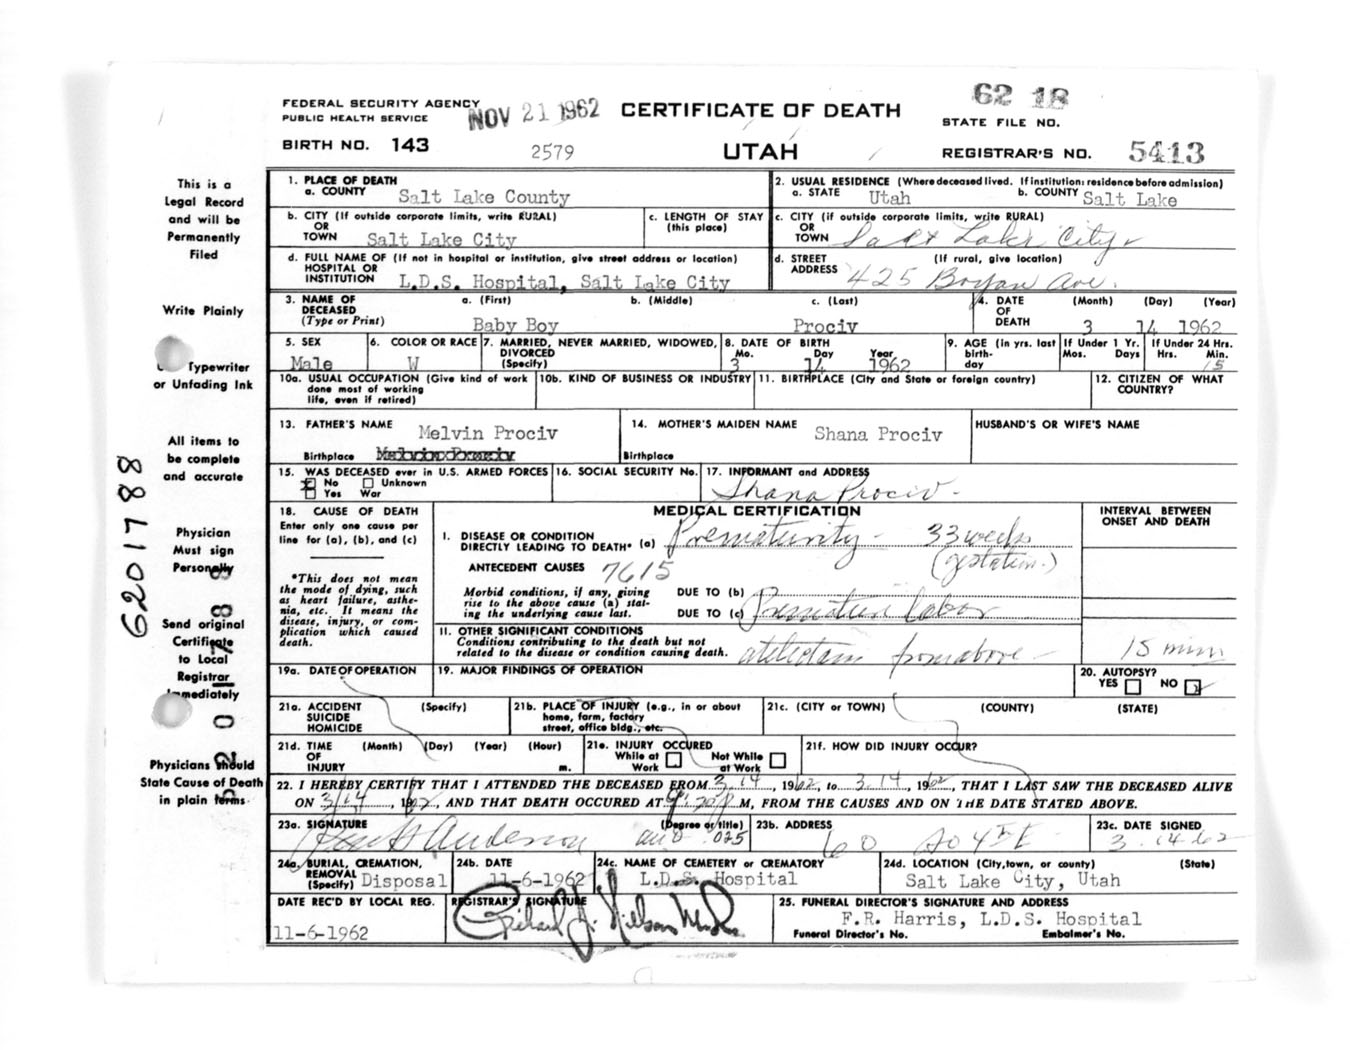 FEDERAL SECURITY AGENCY
PUBLIC HEALTH SERVICE
NOV 21 1962
CERTIFICATE OF DEATH
62 18
STATE FILE NO.
BIRTH NO. 143
2579
UTAH
REGISTRAR'S NO. 5413
This is a
Legal Record
and will be
Permanently
Filed
Write Plainly
Typewriter
or Unfading Ink
All items to
be complete
and accurate
Physician
Must sign
Personally
Send original
Certificate
to Local
Registrar
Immediately
Physicians should
State Cause of Death
in plain terms
6201788
1. PLACE OF DEATH
a. COUNTY Salt Lake County
2. USUAL RESIDENCE (Where deceased lived. If institution: residence before admission)
a. STATE Utah b. COUNTY Salt Lake
b. CITY (If outside corporate limits, write RURAL)
OR
TOWN Salt Lake City
c. LENGTH OF STAY
(this place)
c. CITY (if outside corporate limits, write RURAL)
OR
TOWN Salt Lake City
d. FULL NAME OF (If not in hospital or institution, give street address or location)
HOSPITAL OR
INSTITUTION L.D.S. Hospital, Salt Lake City
d. STREET (If rural, give location)
ADDRESS 425 Bryan Ave.
3. NAME OF DECEASED
(Type or Print)
a. (First) b. (Middle) c. (Last)
Baby Boy Prociv
4. DATE OF DEATH (Month) (Day) (Year)
3 14 1962
5. SEX
Male
6. COLOR OR RACE
W
7. MARRIED, NEVER MARRIED, WIDOWED,
DIVORCED
(Specify)
8. DATE OF BIRTH
Mo. Day Year
3 14 1962
9. AGE (in yrs. last
birth-
day
If Under 1 Yr.
Mos. Days
If Under 24 Hrs.
Hrs. Min.
15
10a. USUAL OCCUPATION (Give kind of work
done most of working
life, even if retired)
10b. KIND OF BUSINESS OR INDUSTRY
11. BIRTHPLACE (City and State or foreign country)
12. CITIZEN OF WHAT
COUNTRY?
13. FATHER'S NAME Melvin Prociv
Birthplace
14. MOTHER'S MAIDEN NAME Shana Prociv
Birthplace
HUSBAND'S OR WIFE'S NAME
15. WAS DECEASED ever in U.S. ARMED FORCES
No Unknown
Yes War
16. SOCIAL SECURITY No.
17. INFORMANT and ADDRESS
Shana Prociv
18. CAUSE OF DEATH
Enter only one cause per
line for (a), (b), and (c)
*This does not mean
the mode of dying, such
as heart failure, asthe-
nia, etc. It means the
disease, injury, or com-
plication which caused
death.
MEDICAL CERTIFICATION
INTERVAL BETWEEN
ONSET AND DEATH
I. DISEASE OR CONDITION
DIRECTLY LEADING TO DEATH* (a) Prematurity - 33 weeks
(gestation.)
ANTECEDENT CAUSES 7615
Morbid conditions, if any, giving
rise to the above cause (a) stat-
ing the underlying cause last.
DUE TO (b)
DUE TO (c) Premature labor
II. OTHER SIGNIFICANT CONDITIONS
Conditions contributing to the death but not
related to the disease or condition causing death.
atelectasis from above - 15 min
19a. DATE OF OPERATION
19. MAJOR FINDINGS OF OPERATION
20. AUTOPSY?
YES NO
21a. ACCIDENT (Specify)
SUICIDE
HOMICIDE
21b. PLACE OF INJURY (e.g., in or about
home, farm, factory
street, office bldg., etc.
21c. (CITY or TOWN) (COUNTY) (STATE)
21d. TIME (Month) (Day) (Year) (Hour)
OF
INJURY m.
21e. INJURY OCCURED
While at Work Not While at Work
21f. HOW DID INJURY OCCUR?
22. I HEREBY CERTIFY THAT I ATTENDED THE DECEASED FROM 3.14, 1962, to 3.14, 1962, THAT I LAST SAW THE DECEASED ALIVE
ON 3/14, 1962, AND THAT DEATH OCCURED AT M, FROM THE CAUSES AND ON THE DATE STATED ABOVE.
23a. SIGNATURE (Degree or title)
Anderson M.D. 025
23b. ADDRESS
60 So 4th E
23c. DATE SIGNED
3.14.62
24a. BURIAL, CREMATION,
REMOVAL
(Specify) Disposal
24b. DATE
11-6-1962
24c. NAME OF CEMETERY or CREMATORY
L.D.S. Hospital
24d. LOCATION (City, town, or county) (State)
Salt Lake City, Utah
DATE REC'D BY LOCAL REG.
11-6-1962
REGISTRAR'S SIGNATURE
25. FUNERAL DIRECTOR'S SIGNATURE AND ADDRESS
F.R. Harris, L.D.S. Hospital
Funeral Director's No. Embalmer's No.